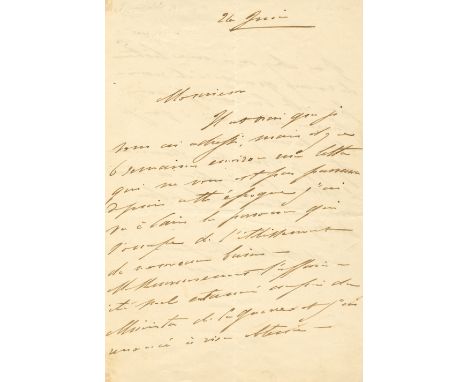 24 Juin
Monsieur
Il est vrai que je
vous ai adressé, mais il y a
6 semaines environ une lettre
qui ne vous est pas parvenue
depuis cette époque j'ai
vu à la personne qui
s'occupe de l'établissement
de nouveaux bains
Malheureusement l'affaire
été mal auprès du
Ministre de la Guerre et j'ai
renoncé à rien